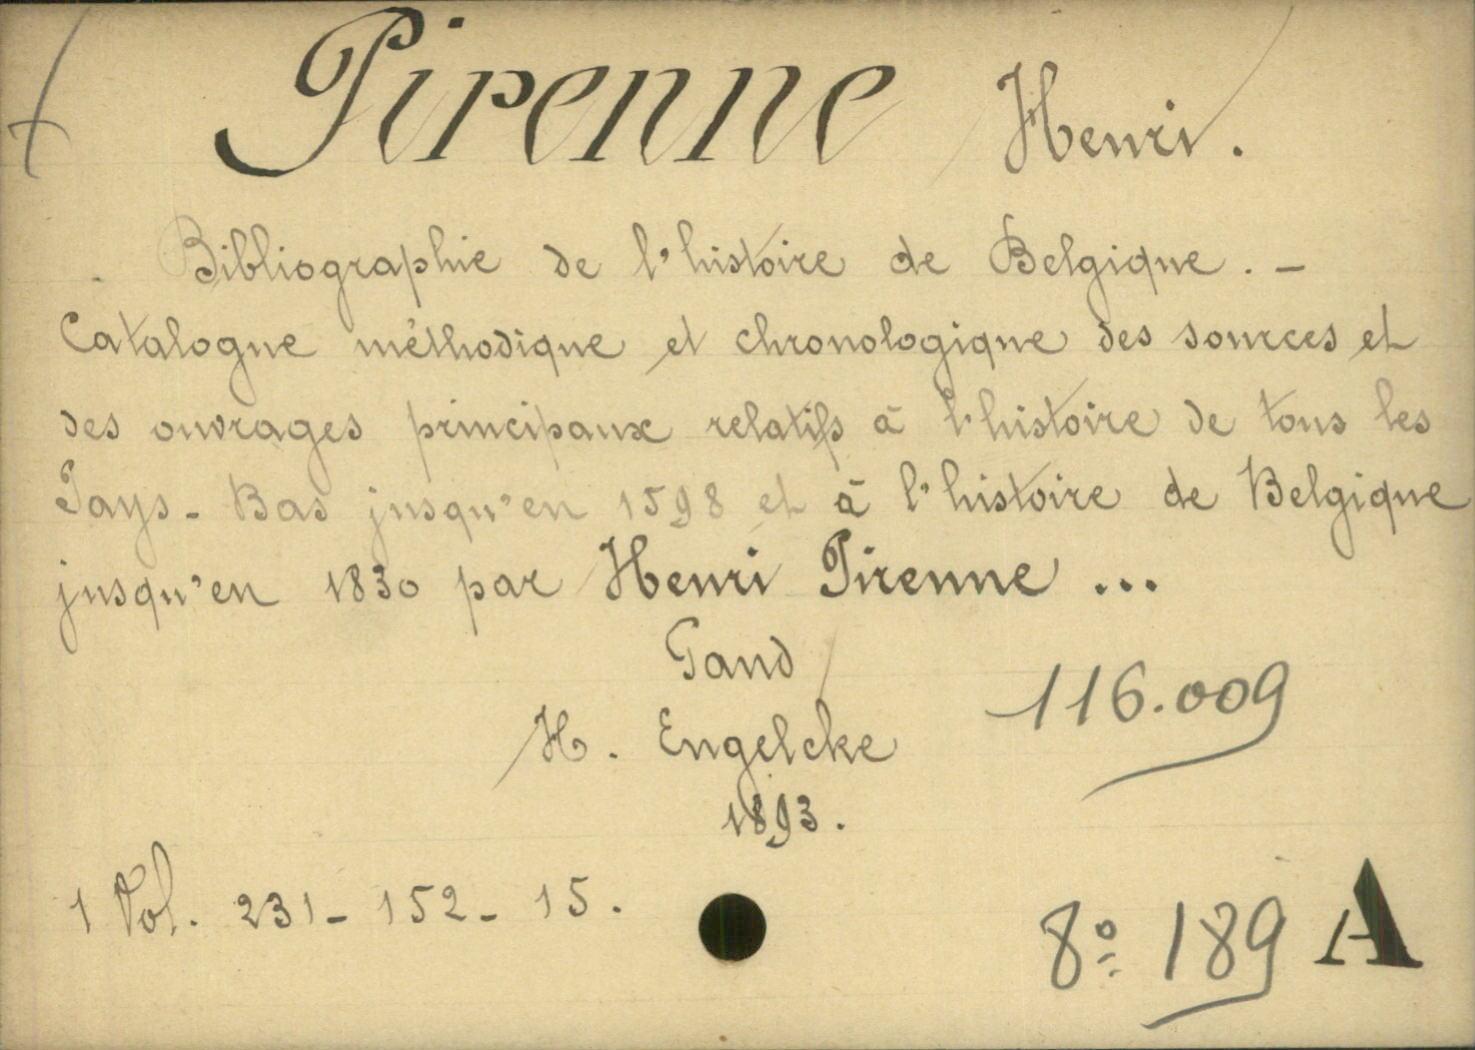 Pirenne Henri.
Bibliographie de l'histoire de Belgique. -
Catalogue méthodique et chronologique des sources et
des ouvrages principaux relatifs à l'histoire de tous les
Pays-Bas jusqu'en 1598 et à l'histoire de Belgique
jusqu'en 1830 par Henri Pirenne ...
Gand
H. Engelcke
1893.
116.009
1 Vol. 231-152-15.
8º 189 A